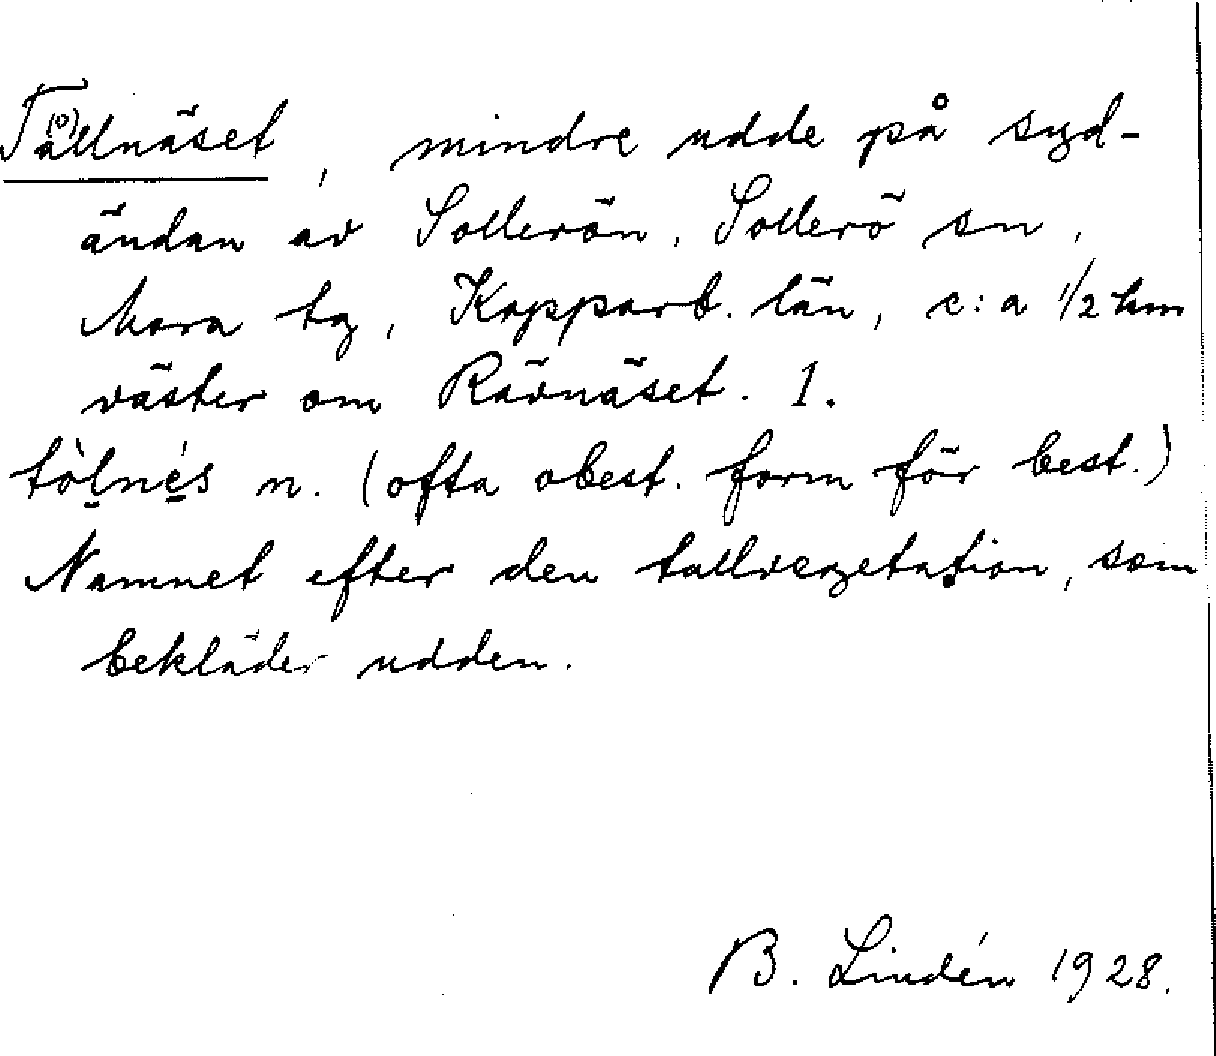 Tållnäset, mindre udde på syd-
ändan av Sollerön, Sollerö sn,
Mora tg, Kopparb. län, c:a 1/2 km
väster om Rävnäset. 1.
tòl̠nés n. (ofta obest. form för best.)
Namnet efter den tallvegetation, som
bekläder udden.
B. Lindén 1928.